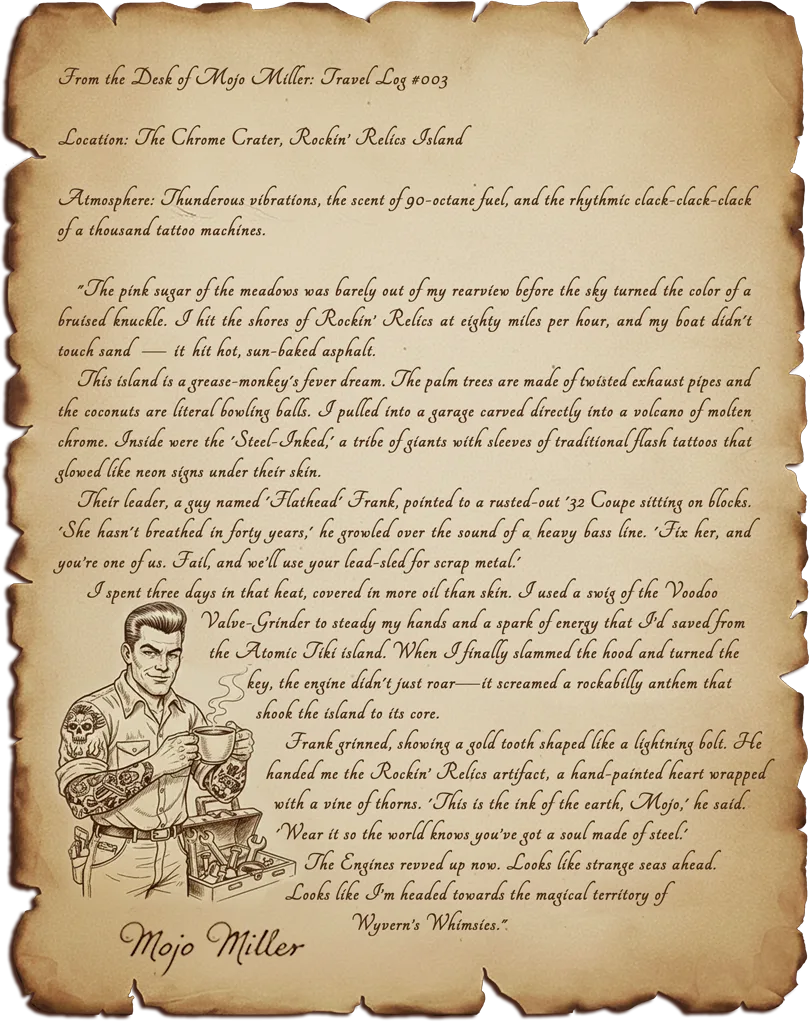 From the Desk of Mojo Miller: Travel Log #003
Location: The Chrome Crater, Rockin' Relics Island
Atmosphere: Thunderous vibrations, the scent of 90-octane fuel, and the rhythmic clack-clack-clack
of a thousand tattoo machines.
"The pink sugar of the meadows was barely out of my rearview before the sky turned the color of a
bruised knuckle. I hit the shores of Rockin' Relics at eighty miles per hour, and my boat didn't
touch sand — it hit hot, sun-baked asphalt.
This island is a grease-monkey's fever dream. The palm trees are made of twisted exhaust pipes and
the coconuts are literal bowling balls. I pulled into a garage carved directly into a volcano of molten
chrome. Inside were the 'Steel-Inked,' a tribe of giants with sleeves of traditional flash tattoos that
glowed like neon signs under their skin.
Their leader, a guy named 'Flathead' Frank, pointed to a rusted-out '32 Coupe sitting on blocks.
'She hasn't breathed in forty years,' he growled over the sound of a heavy bass line. 'Fix her, and
you're one of us. Fail, and we'll use your lead-sled for scrap metal.'
I spent three days in that heat, covered in more oil than skin. I used a swig of the Voodoo
Valve-Grinder to steady my hands and a spark of energy that I'd saved from
the Atomic Tiki island. When I finally slammed the hood and turned the
key, the engine didn't just roar—it screamed a rockabilly anthem that
shook the island to its core.
Frank grinned, showing a gold tooth shaped like a lightning bolt. He
handed me the Rockin' Relics artifact, a hand-painted heart wrapped
with a vine of thorns. 'This is the ink of the earth, Mojo,' he said.
'Wear it so the world knows you've got a soul made of steel.'
The Engines revved up now. Looks like strange seas ahead.
Looks like I'm headed towards the magical territory of
Wyvern's Whimsies."
Mojo Miller